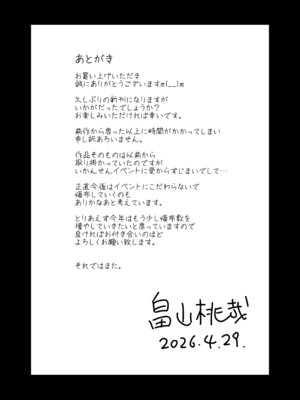 あとがき
お買い上げいただき
誠にありがとうございますm(__)m
久しぶりの新刊になりますが
いかがだったでしょうか？
お楽しみいただければ幸いです。
前作から思った以上に時間がかかってしまい
申し訳ありません。
作品そのものは以前から
取り掛かっていたのですが
いかんせんイベントに受からずじまいでして…
正直今後はイベントにこだわらないで
頒布していくのも
ありかなあと考えています。
とりあえず今年はもう少し頒布数を
増やしていきたいと思っていますので
良ければお付き合いのほど
よろしくお願い致します。
それではまた。
畠山桃哉
2026.4.29.